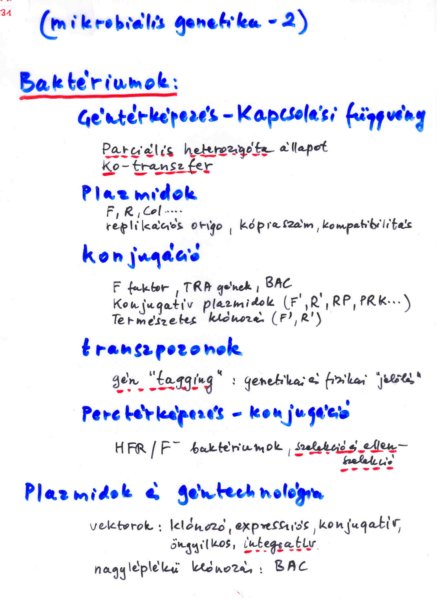 31
(mikrobiális genetika - 2)
Baktériumok:
Géntérképezés - Kapcsolási függvény
Parciális heterozigóta állapot
Ko-transzfer
Plazmidok
F, R, Col ....
replikációs origo, kópiaszám, kompatibilitás
Konjugáció
F faktor, TRA gének, BAC
Konjugatív plazmidok (F', R', RP, PRK...)
Természetes klónozás (F', R')
transzpozonok
gén "tagging" : genetikai és fizikai "jelölés"
Perctérképezés - konjugáció
HFR / F⁻ baktériumok, szelekció és ellen-
szelekció
Plazmidok és géntechnológia
vektorok : klónozó, expressziós, konjugatív,
öngyilkos, integratív
nagyléptékű klónozás : BAC